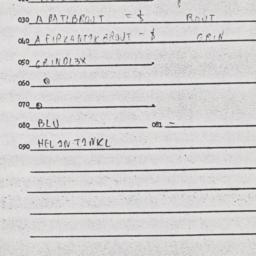 030 A PATLBROUT = $ ROUT
040 A FIPKANTIK BROUT = $ GRIN
050 GRINDL3X
060
070
080 BLU 081 –
090 HELINTINKL